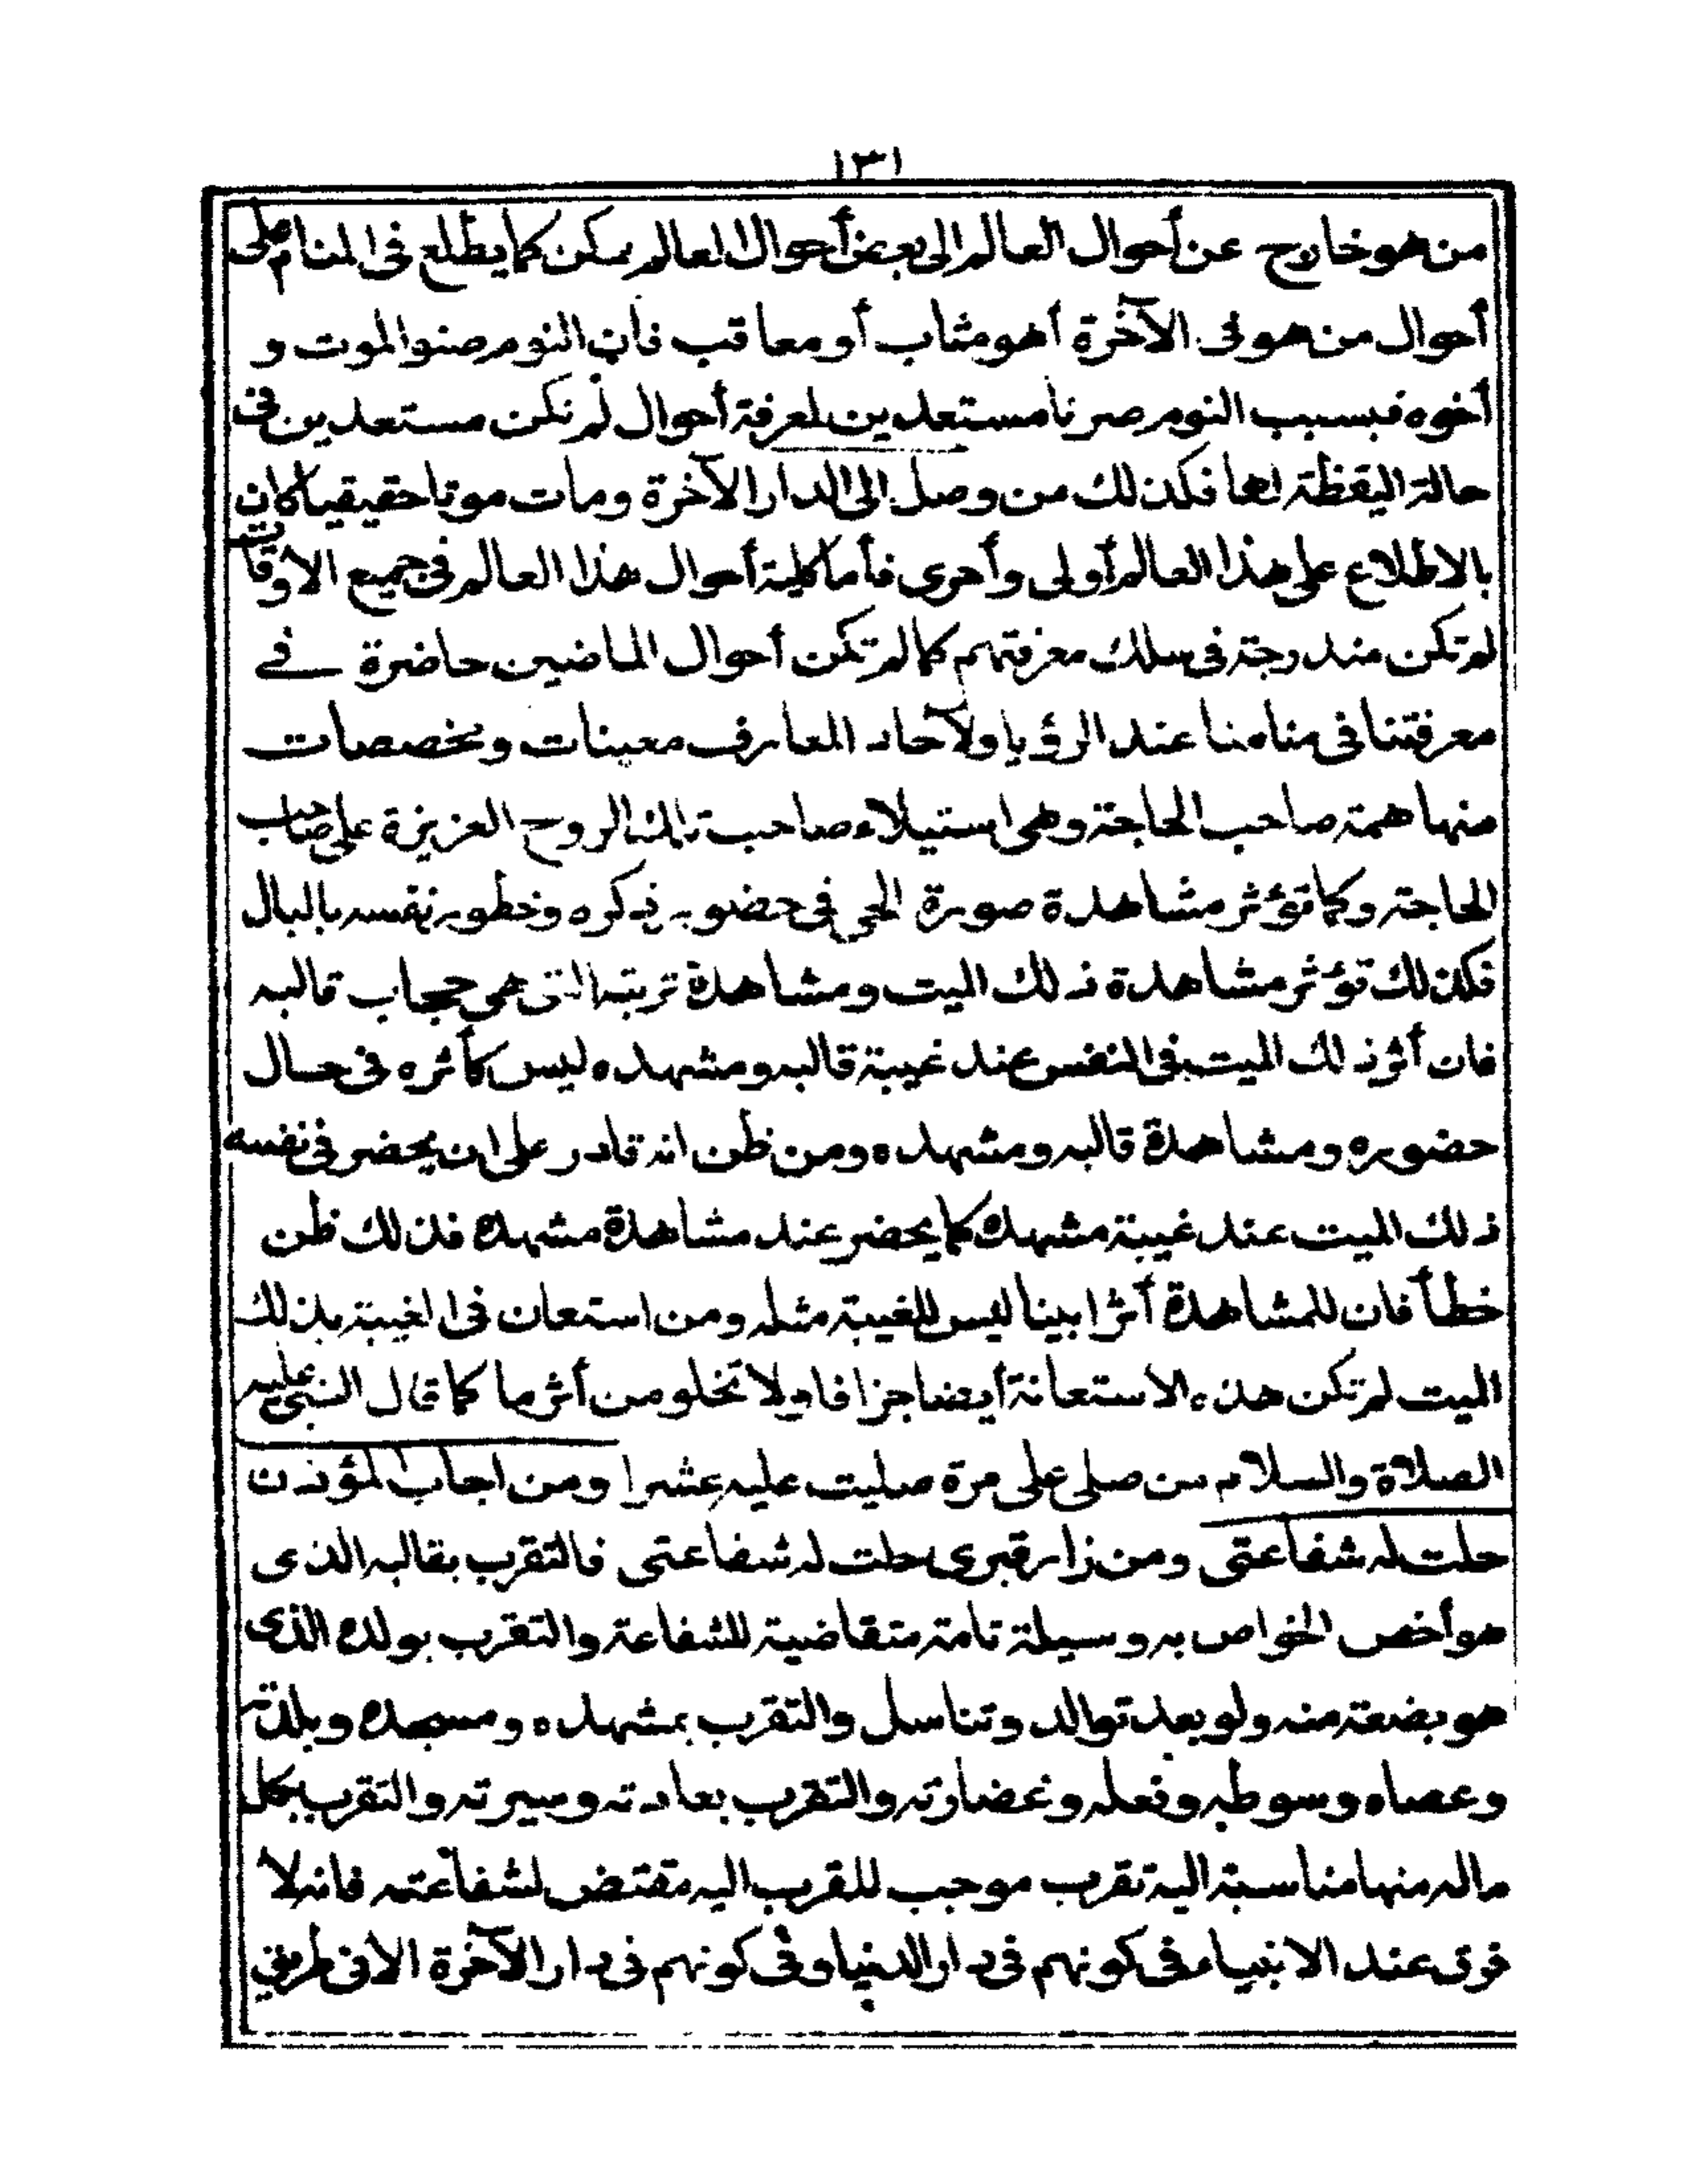 ١٣١
من هو خارج عن أحوال العالم الى بعض أحوال العالم ممكن كما يطلع فى المنام على
أحوال من هو فى الآخرة أهو مثاب أو معاقب فان النوم صنو الموت و
أخوه فبسبب النوم صرنا مستعدين لمعرفة أحوال لم نكن مستعدين فى
حالة اليقظة لها فكذلك من وصل الى الدار الآخرة ومات موتا حقيقيا كان
بالاطلاع على هذا العالم أولى وأحرى فأما كلية أحوال هذا العالم فى جميع الأوقات
لم تكن مندرجة فى سلك معرفتهم كما لم تكن أحوال الماضين حاضرة فى
معرفتنا فى منامنا عند الرؤيا ولآحاد المعارف معينات ومخصصات
منها همة صاحب الحاجة وهى استيلاء صاحب تلك الروح العزيزة على صاحب
الحاجة وكما تؤثر مشاهدة صورة الحى فى حضور ذكره وخطور نفسه بالبال
فكذلك تؤثر مشاهدة ذلك الميت ومشاهدة تربته التى هى حجاب قالبه
فان أثر ذلك الميت فى النفس عند غيبة قالبه ومشهده ليس كأثره فى حال
حضوره ومشاهدة قالبه ومشهده ومن ظن انه قادر على ان يحضر فى نفسه
ذلك الميت عند غيبة مشهده كما يحضر عند مشاهدة مشهده فذلك ظن
خطأ فان للمشاهدة أثرا بينا ليس للغيبة مثله ومن استعان فى الغيبة بذلك
الميت لم تكن هذه الاستعانة أيضا جزافا ولا تخلو من أثر ما كما قال النبى عليه
الصلاة والسلام من صلى على مرة صليت عليه عشرا ومن اجاب المؤذن
حلت له شفاعتى ومن زار قبرى حلت له شفاعتى فالتقرب بقالبه الذى
هو أخص الخواص به وسيلة تامة متقاضية للشفاعة والتقرب بولده الذى
هو بضعة منه ولو بعد توالد وتناسل والتقرب بمشهده ومسجده وبلدته
وعصاه وسوطه ونعله وعضادته والتقرب بعادته وسيرته والتقرب بكل
ماله منها مناسبة اليه تقرب موجب للقرب اليه مقتض لشفاعته فانه لا
فرق عند الانبياء فى كونهم فى دار الدنيا وفى كونهم فى دار الآخرة الا فى طريق